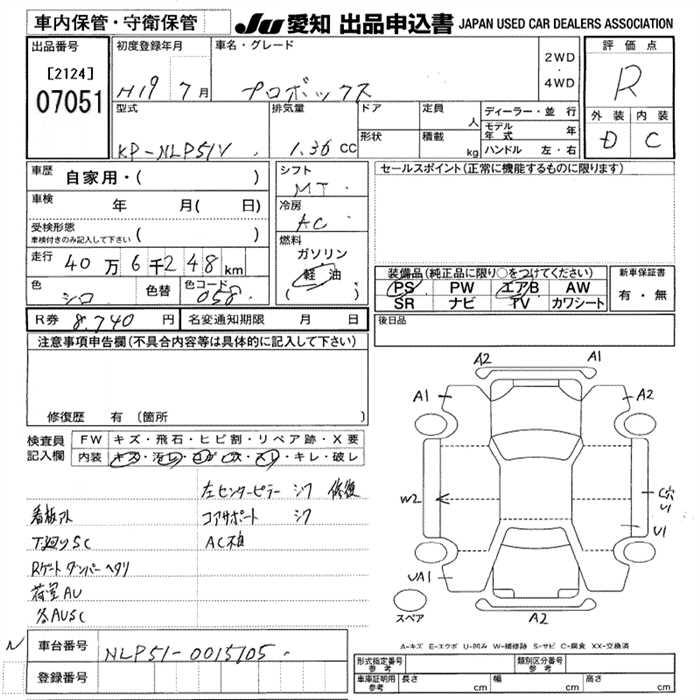 車内保管・守衛保管
JU 愛知 出品申込書 JAPAN USED CAR DEALERS ASSOCIATION
出品番号
[2124]
07051
初度登録年月
H19 7月
車名・グレード
プロボックス
2WD
・
4WD
評価点
R
外装 内装
D C
型式
KP-NLP51V
排気量
1.36 CC
ドア
形状
定員
人
積載
kg
ディーラー・並行
モデル年式 年
ハンドル 左・右
車歴
自家用・( )
車検 年 月( 日)
受検形態
車検付きのみ記入して下さい ( )
走行 40万6千248km
色 シロ 色替 色コード 058
シフト
MT
冷房
AC
燃料
ガソリン
軽油
( )
セールスポイント(正常に機能するものに限ります)
装備品(純正品に限り○をつけてください)
PS PW エアB AW
SR ナビ TV カワシート
新車保証書
有・無
R券 8,740円 名変通知期限 月 日
後日品
注意事項申告欄(不具合内容等は具体的に記入して下さい)
修復歴 有 (箇所 )
検査員記入欄
FW キズ・飛石・ヒビ割・リペア跡・X要
内装 キズ・汚レ・コゲ・穴・スレ・キレ・破レ
左センターピラー シワ 修復
看板アト コアサポート シワ
下廻りSC AC不良
Rゲートダンパーヘタリ
荷室AU
各AUSC
A2
A1
A1
A2
W2
C穴
U1
U1
UA1
A2
スペア
A-キズ E-エクボ U-凹み W-補修跡 S-サビ C-腐食 XX-交換済
N 車台番号 NLP51-0015105
登録番号
形式指定番号 参考
類別区分番号 参考
車庫証明用 参考
長さ cm 幅 cm 高さ cm